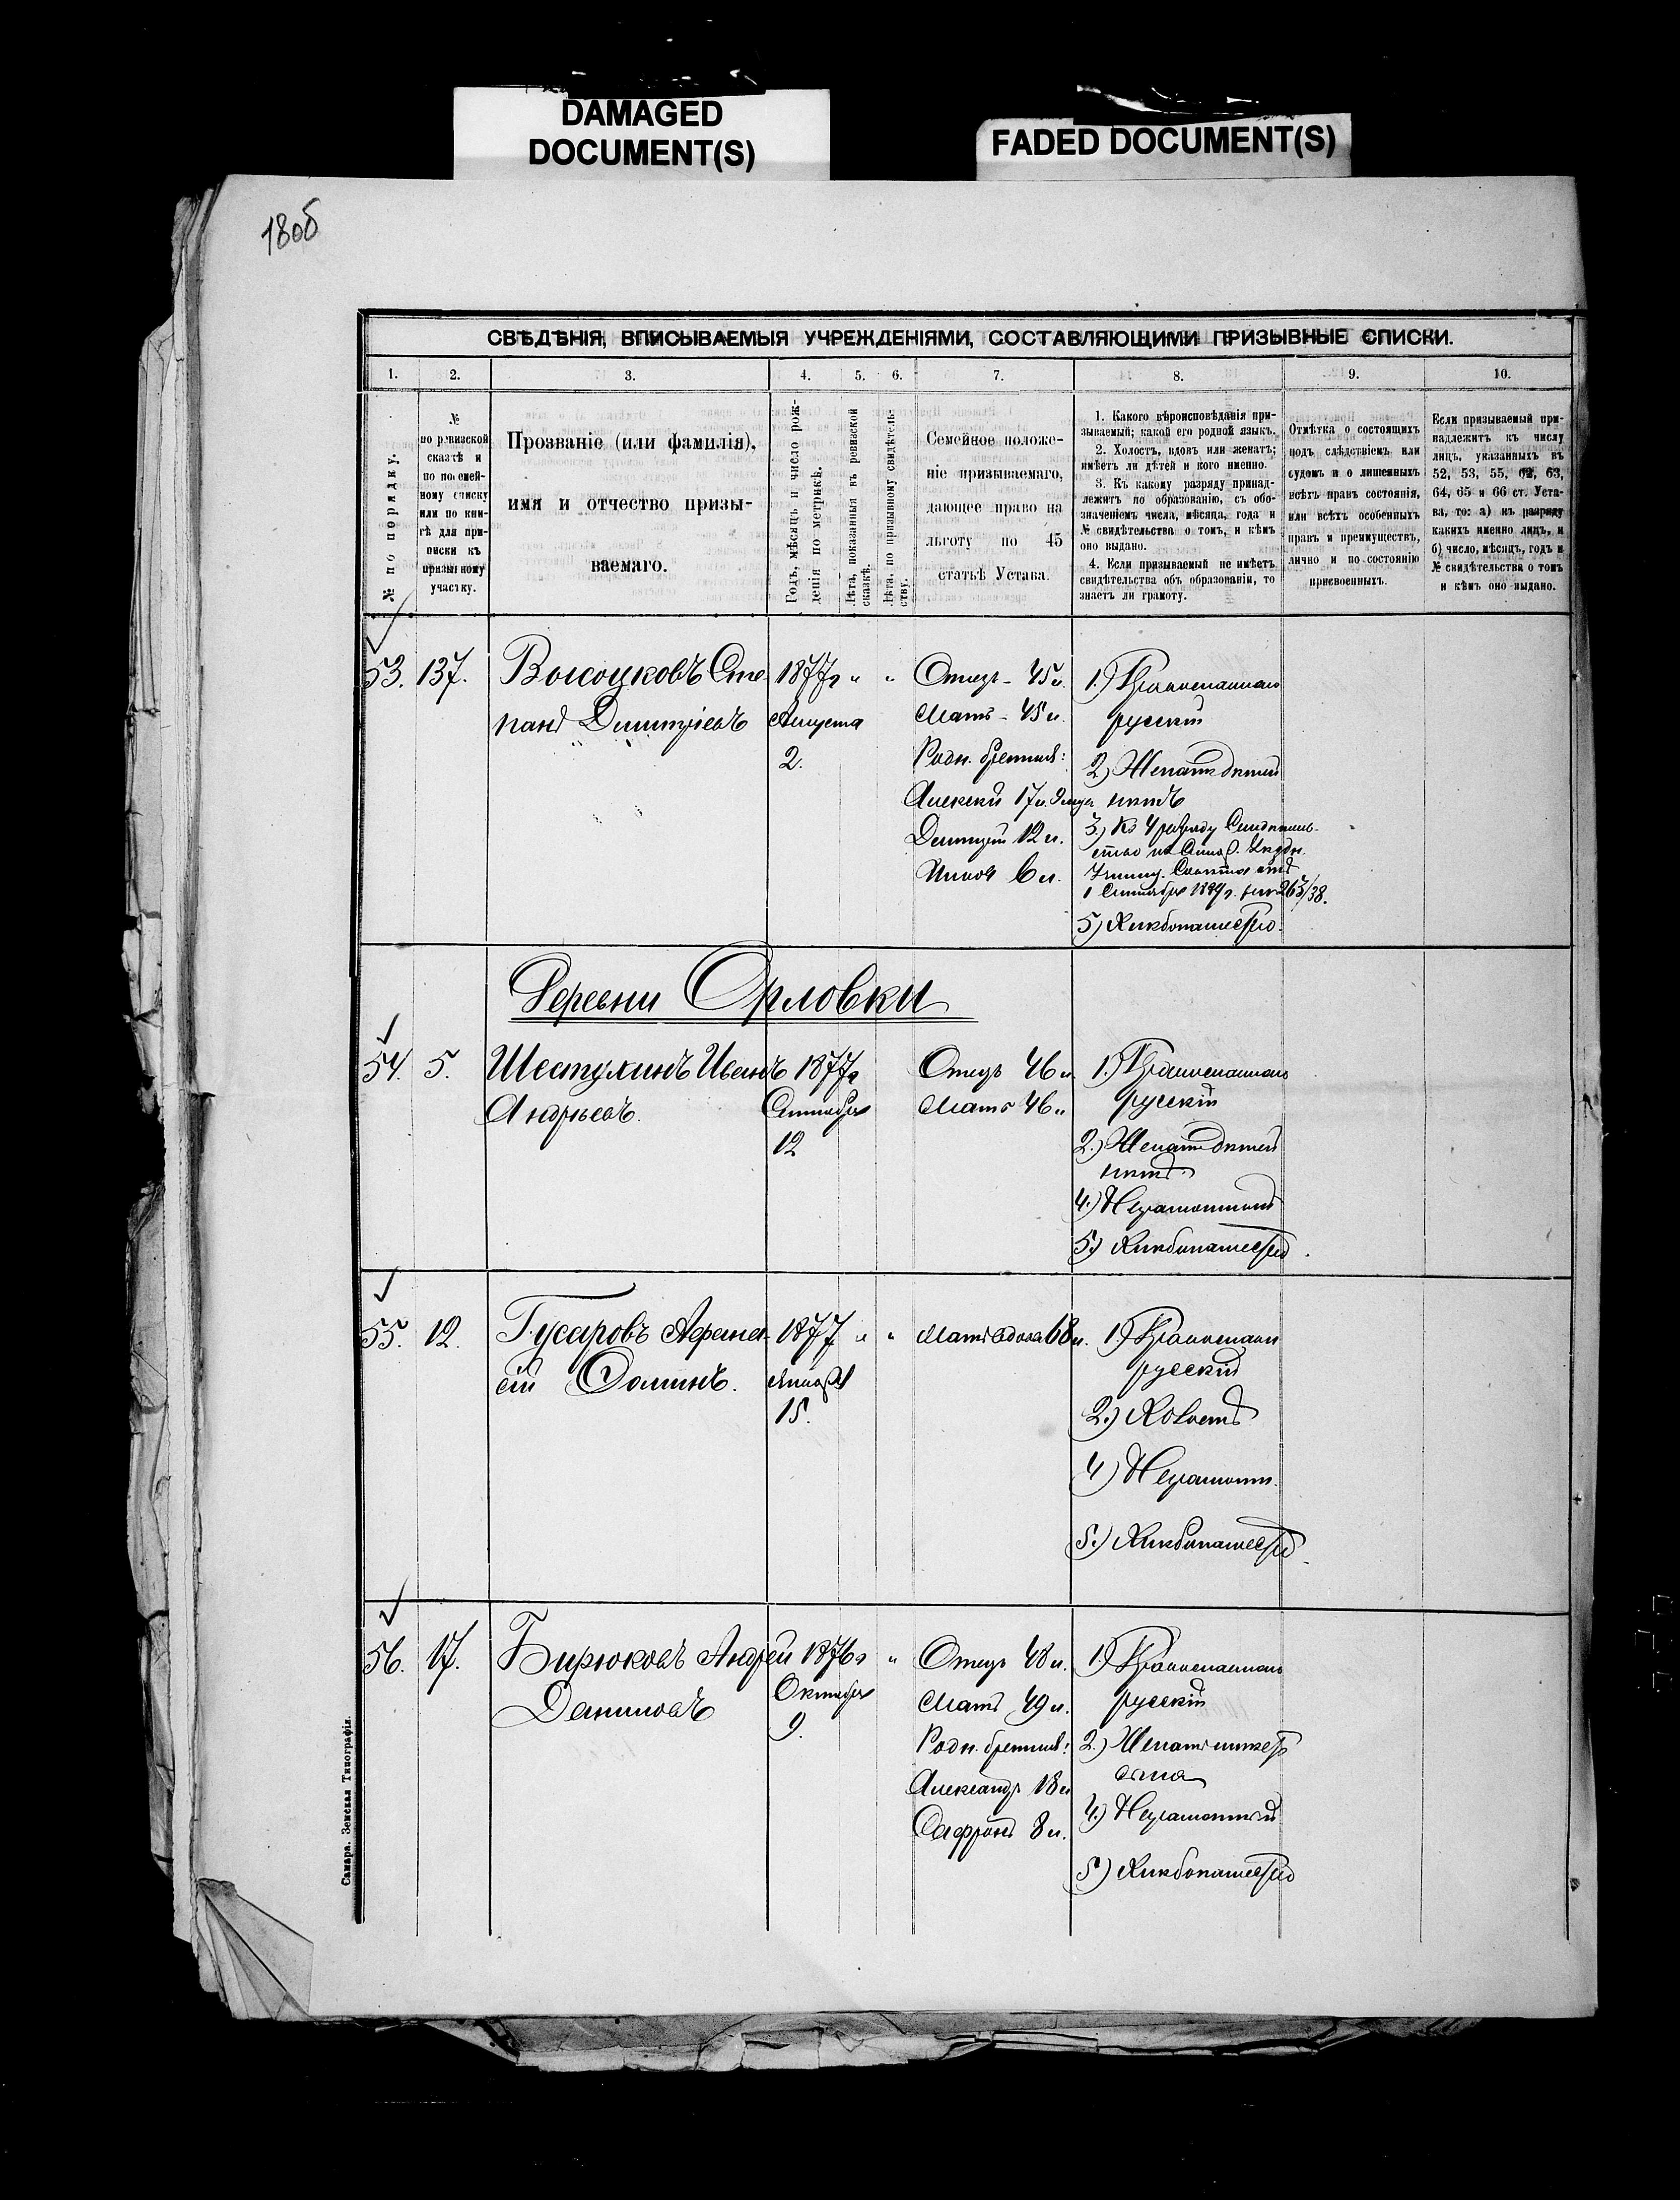 DAMAGED
DOCUMENT(S)
FADED DOCUMENT(S)
180б
СВѢДѢНІЯ, ВПИСЫВАЕМЫЯ УЧРЕЖДЕНІЯМИ, СОСТАВЛЯЮЩИМИ ПРИЗЫВНЫЕ СПИСКИ.
1. 2. 3. 4. 5. 6. 7. 8. 9. 10.
№ по порядку.
№
по ревизской
сказкѣ и
по посемей-
ному списку
или по кни-
гѣ для при-
писки къ
призывному
участку.
Прозваніе (или фамилія),
имя и отчество призы-
ваемаго.
Годъ, мѣсяцъ и число рож-
денія по метрикѣ.
Лѣта, показанныя въ ревизской
сказкѣ.
Лѣта, по призывному свидѣтель-
ству.
Семейное положе-
ніе призываемаго,
дающее право на
льготу по 45
статьѣ Устава.
1. Какого вѣроисповѣданія при-
зываемый; какой его родной языкъ.
2. Холостъ, вдовъ или женатъ;
имѣетъ ли дѣтей и кого именно.
3. Къ какому разряду принад-
лежитъ по образованію, съ обо-
значеніемъ числа, мѣсяца, года и
№ свидѣтельства о томъ, и кѣмъ
оно выдано.
4. Если призываемый не имѣетъ
свидѣтельства объ образованіи, то
знаетъ ли грамоту.
Отмѣтка о состоящихъ
подъ слѣдствіемъ или
судомъ и о лишенныхъ
всѣхъ правъ состоянія,
или всѣхъ особенныхъ
правъ и преимуществъ,
лично и по состоянію
присвоенныхъ.
Если призываемый при-
надлежитъ къ числу
лицъ, указанныхъ въ
52, 53, 55, 62, 63,
64, 65 и 66 ст. Уста-
ва, то: а) къ разряду
какихъ именно лицъ, и
б) число, мѣсяцъ, годъ и
№ свидѣтельства о томъ
и кѣмъ оно выдано.
53. 137. Высоцковъ Сте-
панъ Дмитріевъ
1877г " "
Августа
2.
Отецъ - 45 л.
Мать - 45 л.
Родн. братья:
Алексѣй 17 л.
Дмитрій 12 л.
6 л.
1.) Православнаго
русскій
2.) Женатъ дѣтей
нѣтъ
3.) Къ 4 разряду Свидѣтель-
ство
1 Сентября 1889 г. за № 263/38.
5) Хлѣбопашество.
Деревни Орловки
54. 5. Шестухинъ Иванъ
Андреевъ.
1877г
Сентября
12
Отецъ 46 л.
Мать 46 л.
1.) Православнаго
русскій
2.) Женатъ дѣтей
нѣтъ.
4.) Неграмотный
5.) Хлѣбопашество.
55. 12. Гусаровъ Афана-
сій Фоминъ.
1877 " "
Января
15.
Мать вдова 68 л.
1.) Православн
русскій
2.) Холостъ
4) Неграмотн.
5.) Хлѣбопашество.
56. 17. Бирюковъ Андрей
Даниловъ
1876г "
Октября
9.
Отецъ 48 л.
Мать 49 л.
Родн. братья:
Александръ 18 л.
Сафронъ 8 л.
1.) Православнаго
русскій
2.) Женатъ имѣетъ
сына
4.) Неграмотный
5) Хлѣбопашество
Самара. Земская Типографія.